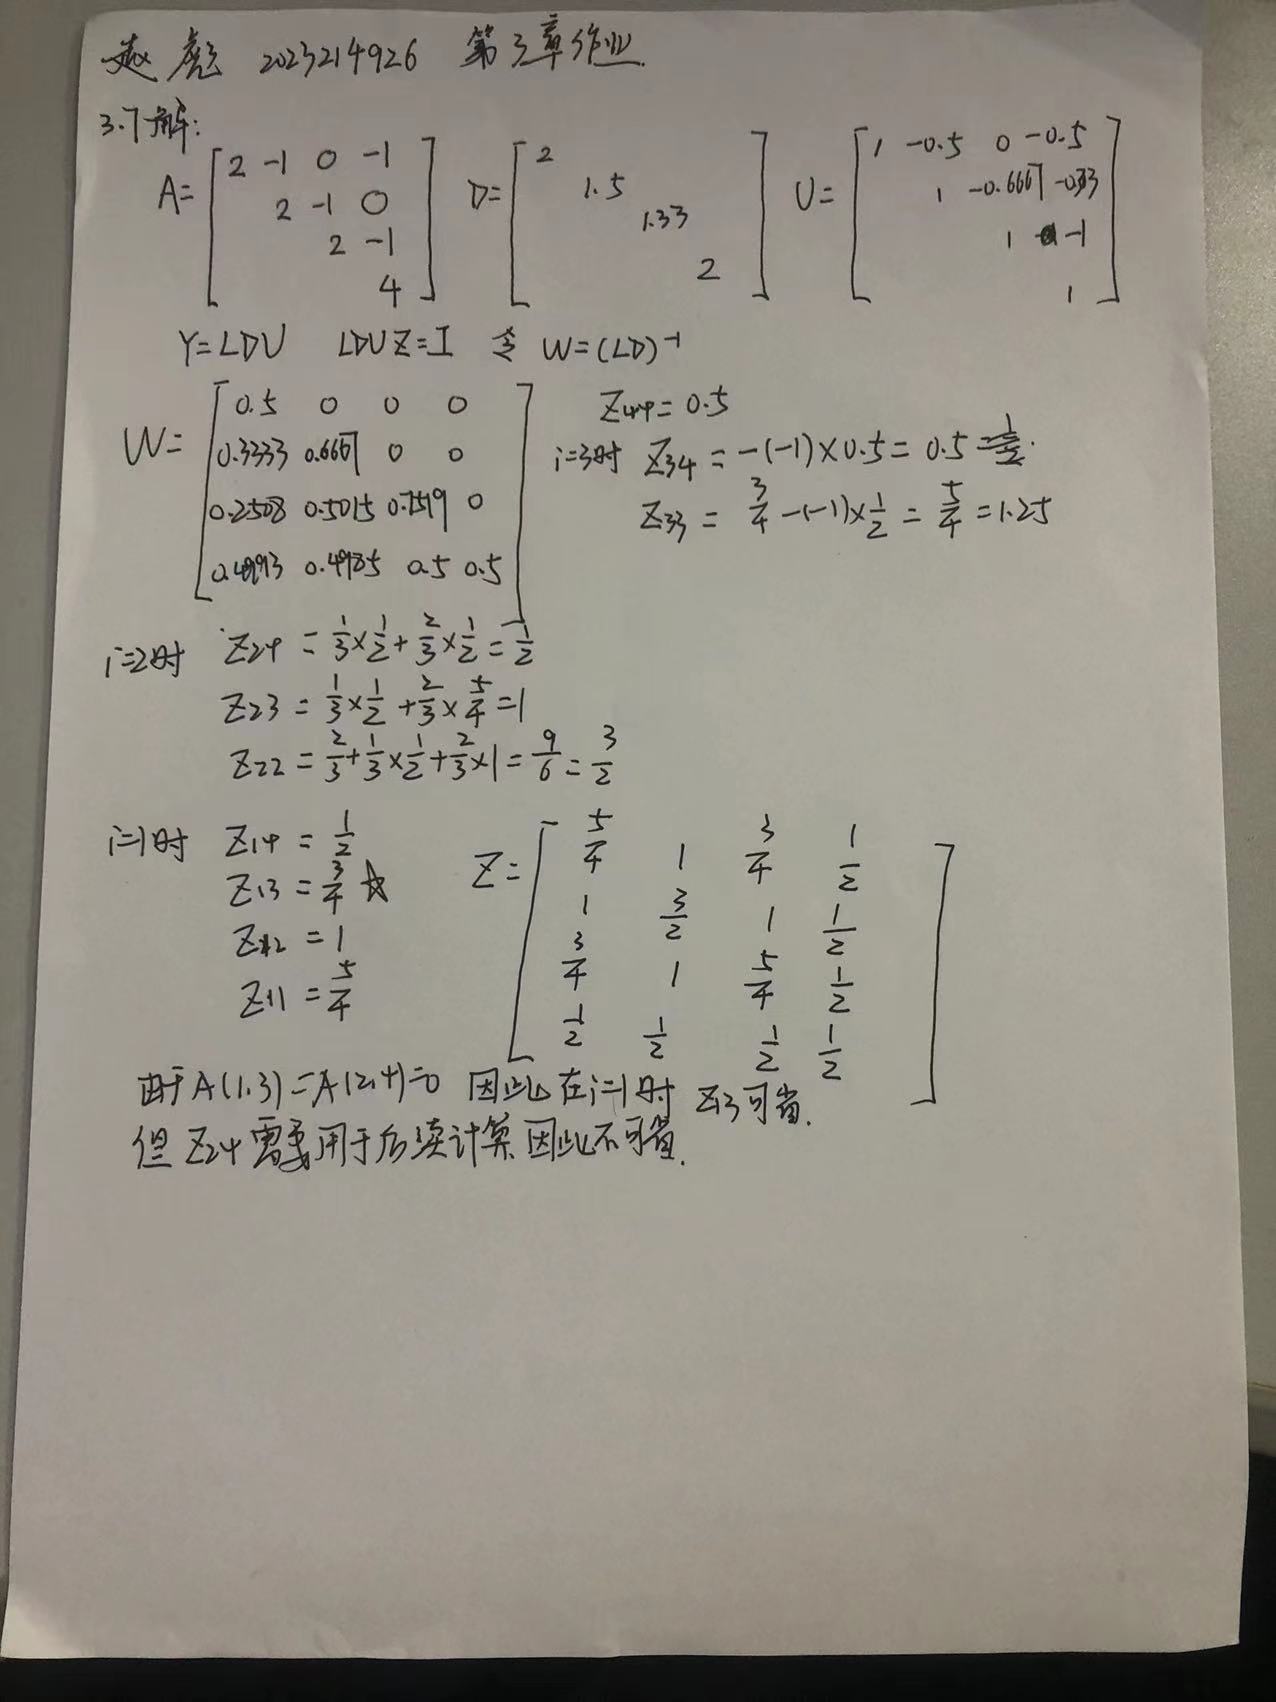 赵彪 2023214926 第3章作业
3.7解:
A= [2 -1 0 -1; 2 -1 0; 2 -1; 4] D= [2; 1.5; 1.33; 2] U= [1 -0.5 0 -0.5; 1 -0.6667 -0.33; 1 -1; 1]
Y=LDU LDUZ=I 令 W=(LD)⁻¹
W= [0.5 0 0 0; 0.3333 0.6667 0 0; 0.2508 0.5015 0.7519 0; 0.4993 0.4985 0.5 0.5]
Z44=0.5
i=3时 Z34 = -(-1)×0.5 = 0.5 = 1/2.
Z33 = 3/4 -(-1)×1/2 = 5/4 = 1.25
i=2时 Z24 = 1/3×1/2+2/3×1/2=1/2
Z23 = 1/3×1/2+2/3×5/4=1
Z22 = 2/3+1/3×1/2+2/3×1=9/6=3/2
i=1时 Z14 = 1/2
Z13 = 3/4 ☆
Z12 = 1
Z11 = 5/4
Z= [5/4 1 3/4 1/2; 1 3/2 1 1/2; 3/4 1 5/4 1/2; 1/2 1/2 1/2 1/2]
由于A(1,3)=A(2,4)=0 因此在i=1时 Z13可省.
但 Z24需要用于后续计算因此不可省.